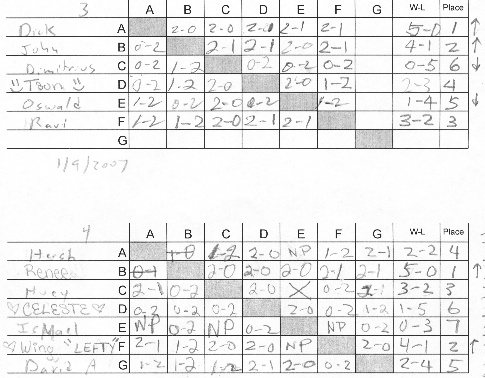 3 A B C D E F G W-L Place
Dick A 2-0 2-0 2-0 2-1 2-1 5-0 1 ↑
John B 0-2 2-1 2-1 2-0 2-1 4-1 2 ↑
Dimitrius C 0-2 1-2 0-2 0-2 0-2 0-5 6 ↓
Toon D 0-2 1-2 2-0 2-0 1-2 2-3 4
Oswald E 1-2 0-2 2-0 0-2 1-2 1-4 5 ↓
Ravi F 1-2 1-2 2-0 2-1 2-1 3-2 3
G
1/9/2007
4 A B C D E F G W-L Place
A 1-2 2-0 NP 1-2 2-1 2-2 4
Renee B 2-0 2-0 2-0 2-1 2-1 5-0 1 ↑
Huey C 2-1 0-2 2-0 0-2 2-1 3-2 3
♡ CELESTE ♡ D 0-2 0-2 0-2 2-0 0-2 1-2 1-5 6
Ismail E NP 0-2 NP 0-2 NP 0-2 0-3 7
♡ Wing "LEFTY" F 2-1 1-2 2-0 2-0 NP 2-0 4-1 2 ↑
David A G 1-2 1-2 1-2 2-1 2-0 0-2 2-4 5